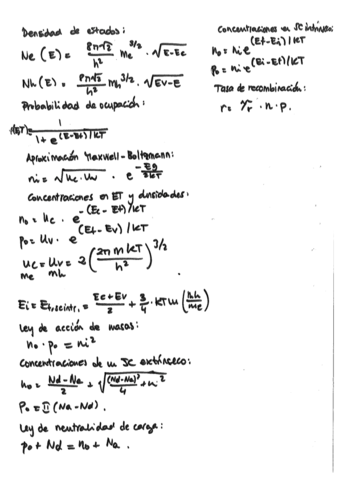 Densidad de estados:
Ne (E) = 8π√2/h² me^3/2 · √E-Ec
Nh (E) = 8π√2/h² mh^3/2 · √Ev-E
Probabilidad de ocupación:
f(E,T) = 1/1 + e^(E-Ef)/kT
Aproximación Maxwell-Boltzmann:
ni = √Uc·Uv · e^-Eg/2kT
Concentraciones en ET y densidades:
no = Uc · e^-(Ec - Ef)/kT
po = Uv · e^(Ef - Ev)/kT
Uc = Uv = 2(2π m kT/h²)^3/2
me mh
Ei = Ef,sc intr. = Ec+Ev/2 + 3/4 · kT ln (mh/me)
Ley de acción de masas:
no · po = ni²
Concentraciones de un SC extrínseco:
no = Nd-Na/2 + √(Nd-Na)²/4 + ni²
Po = (Na-Nd).
Ley de neutralidad de carga:
po + Nd = no + Na.
Concentraciones en SC intrínseco
no = ni e^(Ef-Ei)/kT
po = ni e^(Ei-Ef)/kT
Tasa de recombinación:
r = · n · p.